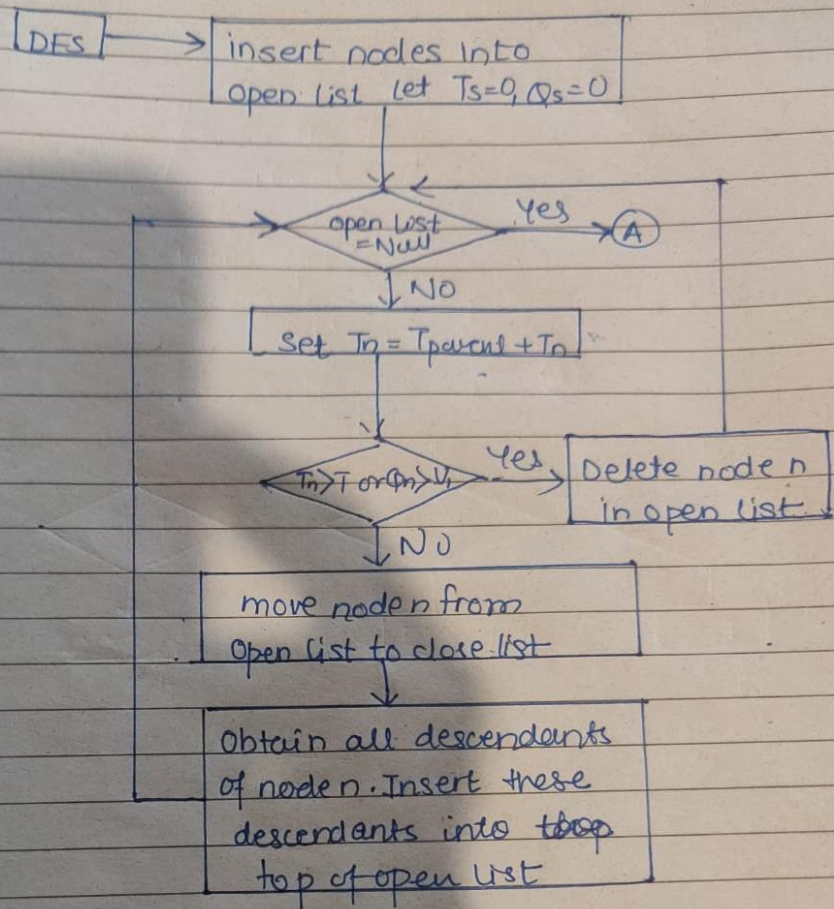 DFS
insert nodes into
open list let Ts=0, Qs=0
open list
=Null
Yes
A
NO
Set Tn = Tparent + Tn
Tn>T or Qn>V,
Yes
Delete node n
in open list
NO
move node n from
open list to close list
Obtain all descendants
of node n. Insert these
descendants into
top of open list